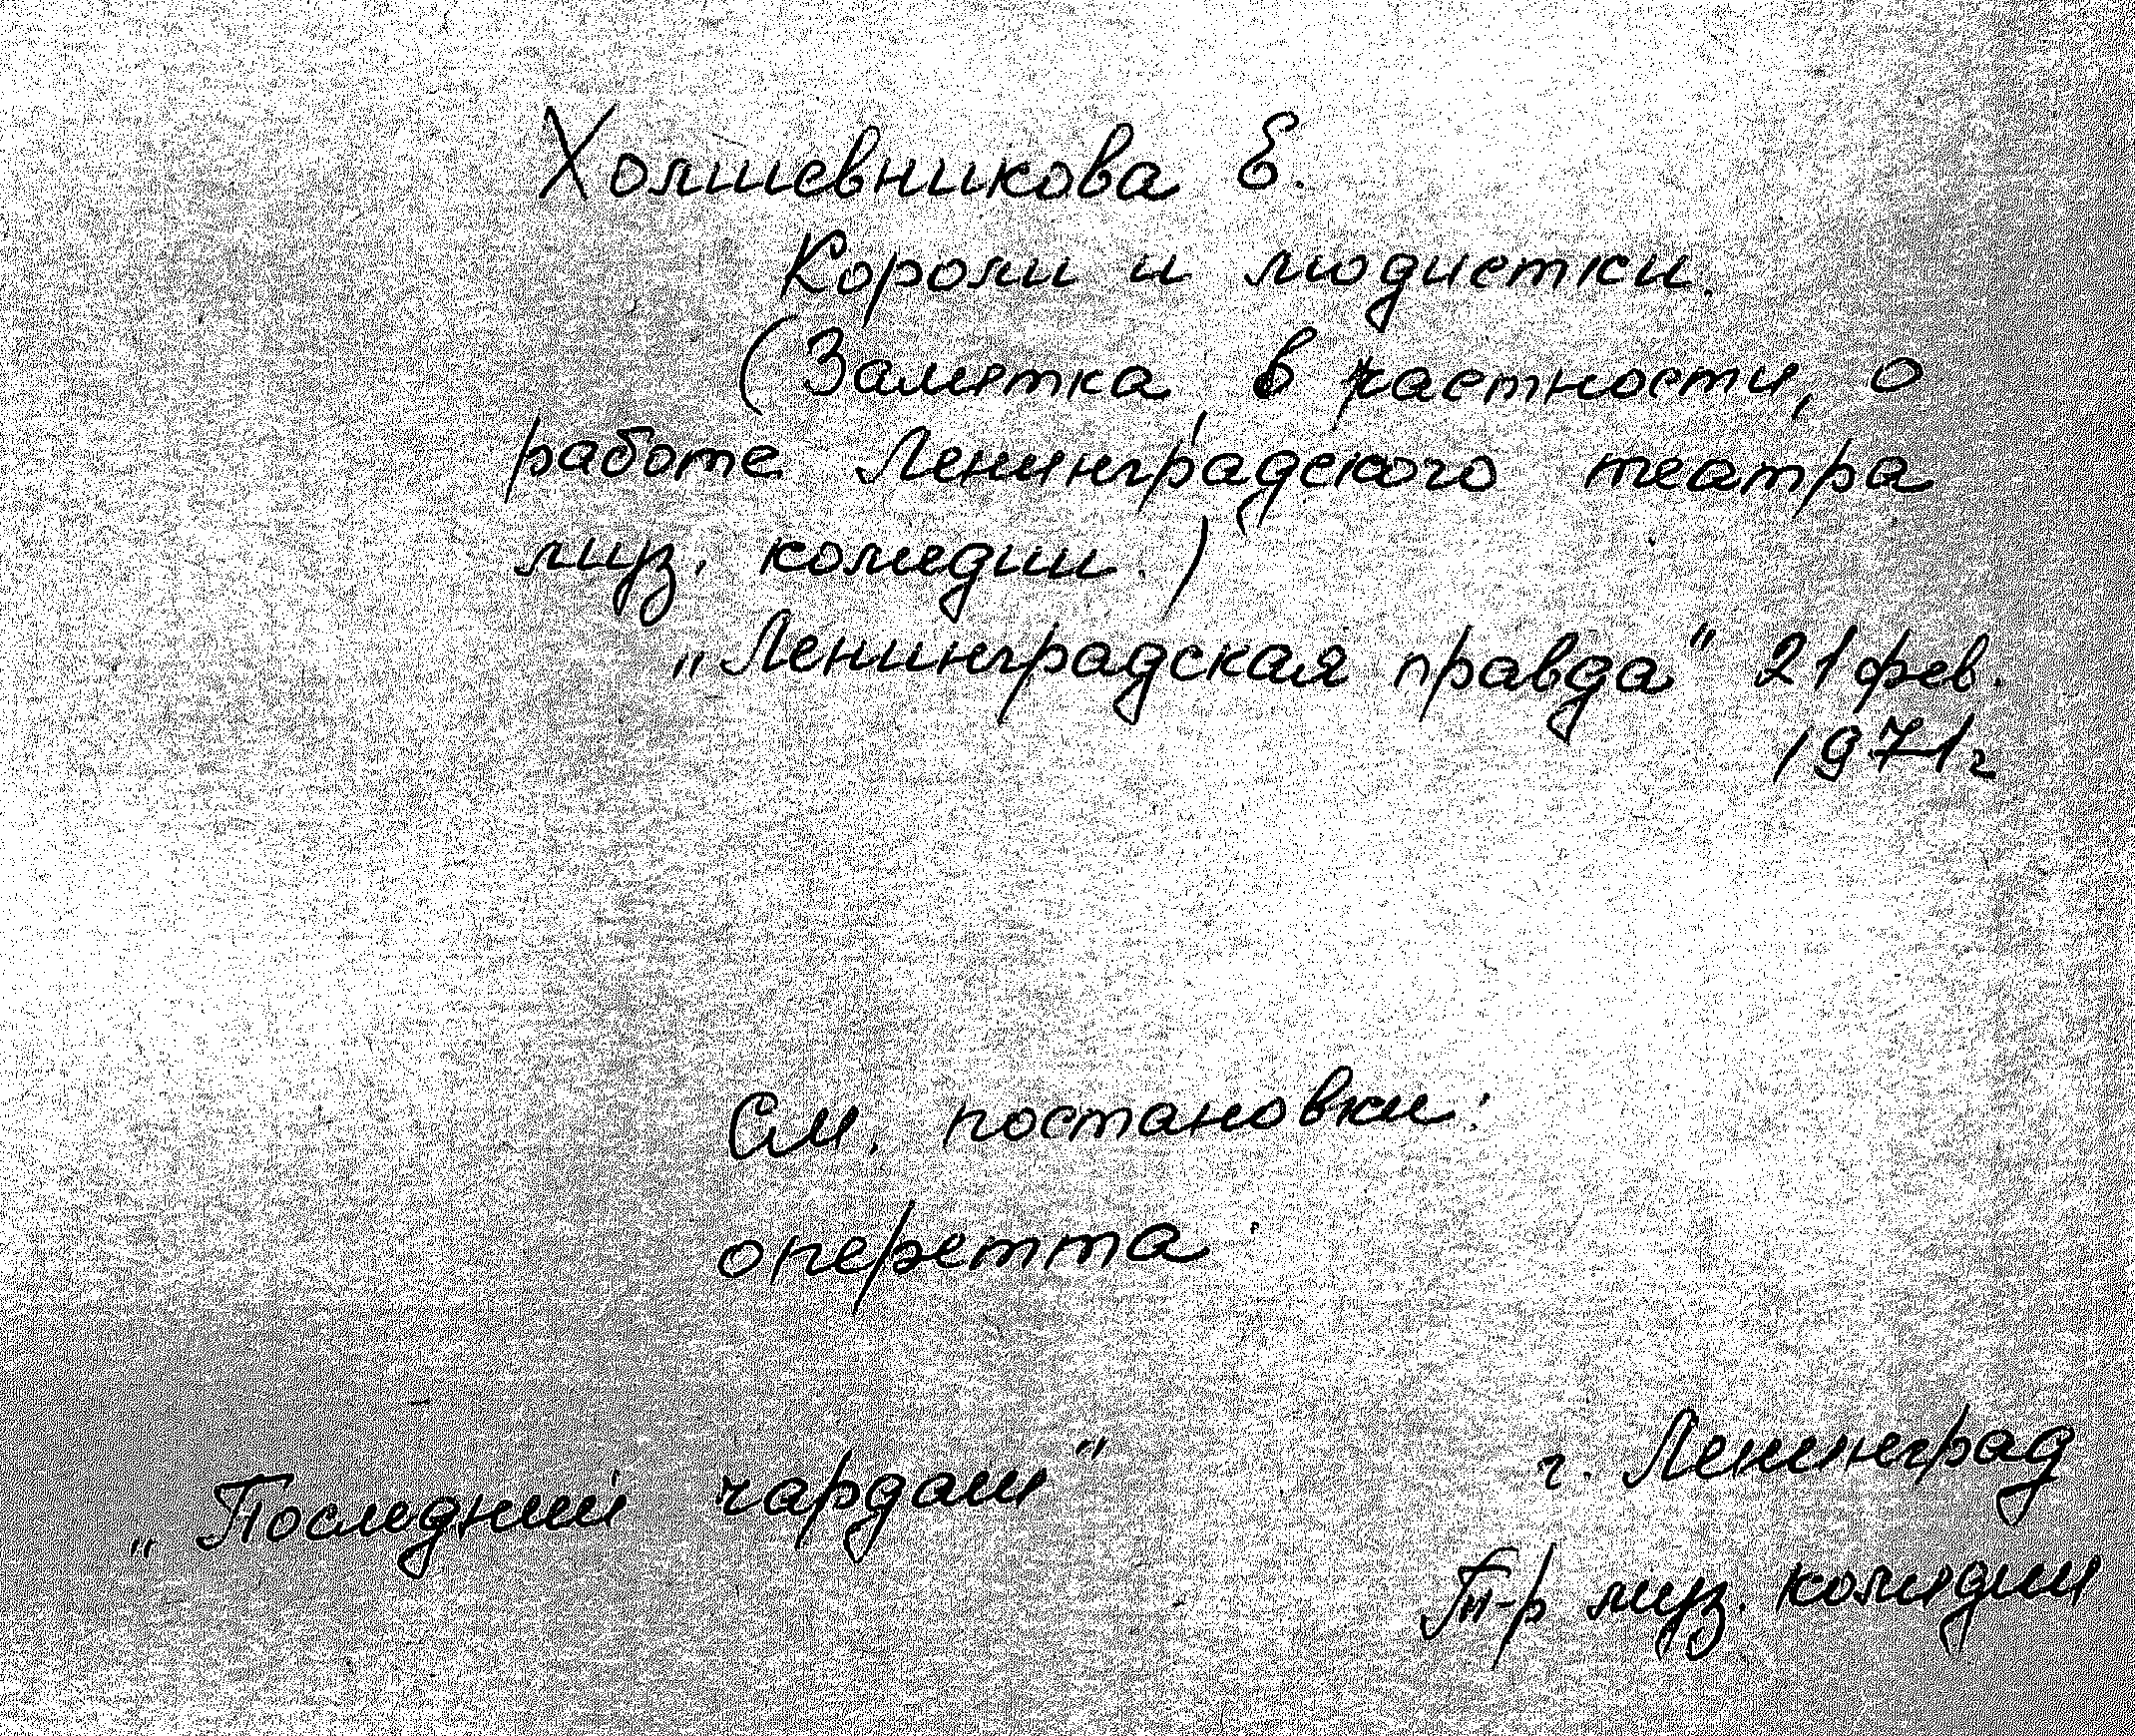 Холшевникова Е.
Короли и модистки.
(Заметка в частности, о
работе Ленинградского театра
муз. комедии.)
„Ленинградская правда" 21 фев.
1971г
См. постановки:
оперетта:
„Последний чардаш" г. Ленинград
Т-р муз. комедии